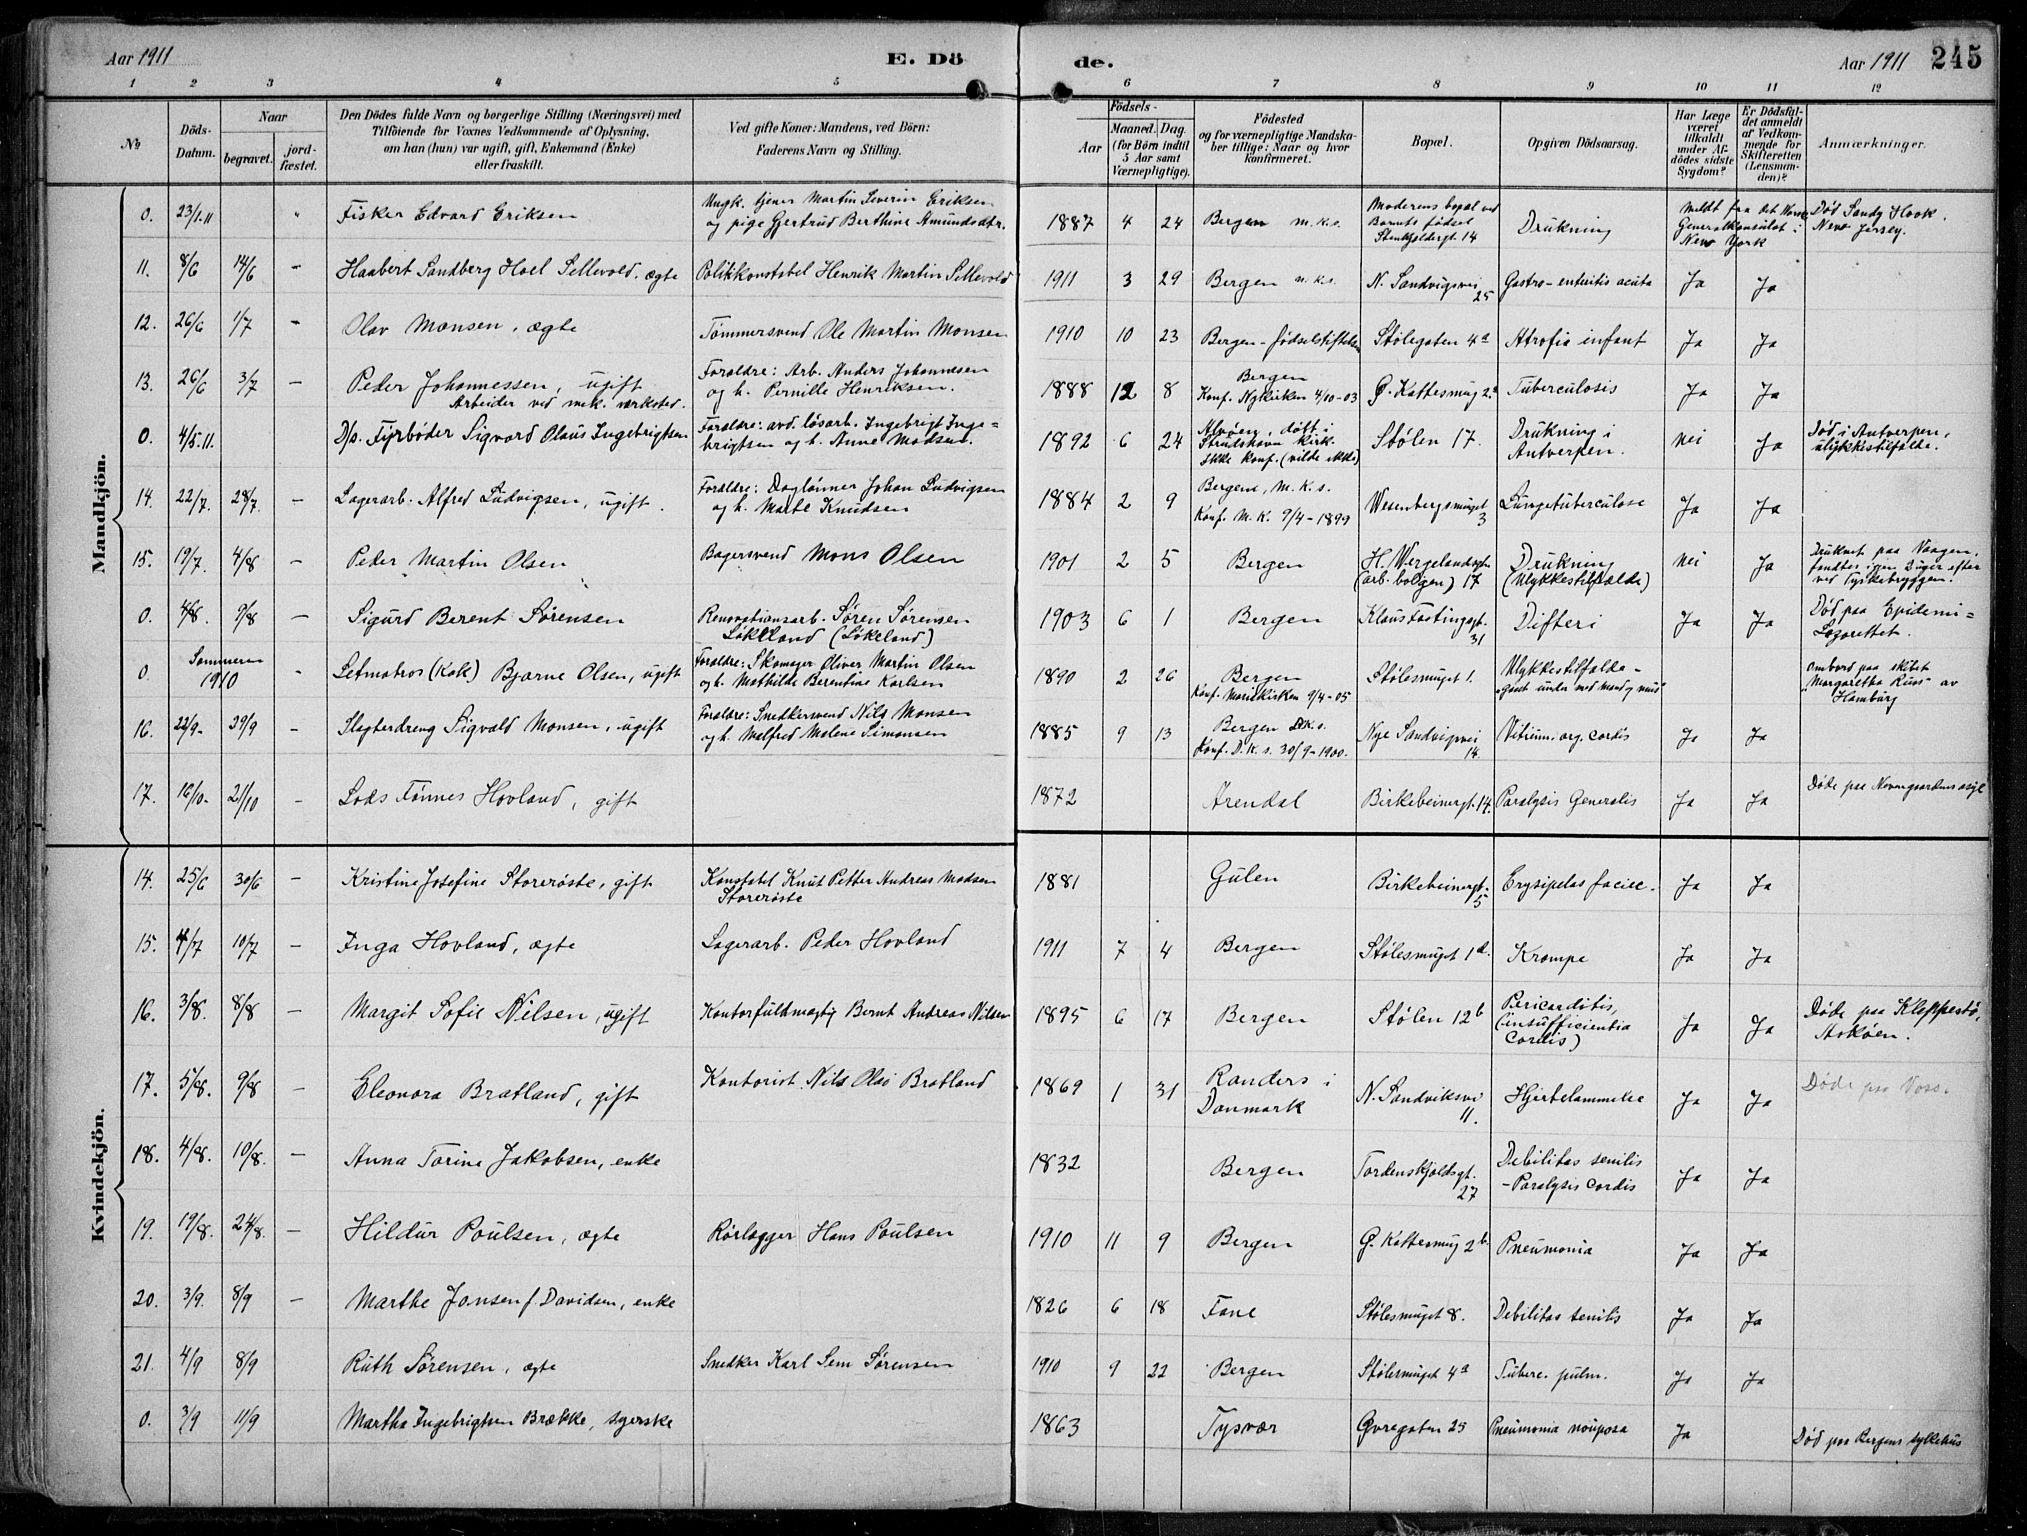 Aar 1911
E. Dö
de.
Aar 1911
245
1 2 3 4 5 6 7 8 9 10 11 12
№
Döds-
Datum.
Naar
begravet.
jord-
fæstet.
Den Dödes fulde Navn og borgerlige Stilling (Næringsvei) med
Tilföiende for Voxnes Vedkommende af Oplysning,
om han (hun) var ugift, gift, Enkemand (Enke)
eller fraskilt.
Ved gifte Koner: Mandens, ved Börn:
Faderens Navn og Stilling.
Födsels-
Aar
Maaned. Dag.
(for Börn indtil
5 Aar samt
Værnepligtige).
Födested
og for værnepligtige Mandska-
ber tillige: Naar og hvor
konfirmeret.
Bopæl.
Opgiven Dödsaarsag.
Har Læge
været
tilkaldt
under Af-
dödes sidste
Sygdom?
Er Dödsfal-
det anmeldt
af Vedkom-
mende for
Skifteretten
(Lensman-
den)?
Anmærkninger.
Mandkjön.
0. 23/1.11 " Fisker Edvard Eriksen
Ungk. tjener Martin Severin Eriksen
og pige Gjertrud Berthine Amundsdtr.
1887 4 24 Bergen m.k.s.
Moderens bopæl ved
Barnets fødsel
Stenkjeldergt. 14
Drukning
Meldt fra det Norske
Generalkonsulat i
New York
Død Sandy Hook.
New Jersey.
11. 8/6 14/6 - Haabert Sandberg Hoel Sellevold. ægte Politikonstabel Henrik Martin Sellevold 1911 3 29 Bergen m.k.s. N. Sandvigsvei
25
Gastro-enteritis acuta Ja Ja
12. 26/6 1/7 - Olav Monsen, ægte Tømmersvend Ole Martin Monsen 1910 10 23 Bergen - fødselstiftelsen Stølegaten 4a Atrofia infant Ja Ja
13. 26/6 3/7 - Peder Johannessen, ugift
Arbeider ved mek. verksted.
Forældre: Arb. Anders Johannesen
og h. Pernille Henriksen.
1888 12 8 Bergen
Konf. Nykirken 4/10-03
Ø. Kattesmug 2a Tuberculosis Ja Ja
0. 4/5.11. D/s. Fyrbøder Sigvard Olaus Ingebrigtsen
Forældre: avd. løsarb. Ingebrigt Inge-
brigtsen og h. Anne Madsen.
1892 6 24 Alvøen, døbt i
Strudshavn kirk.
Ikke konf. (vilde ikke)
Stølen 17. Drukning i
Antwerpen.
nei Ja
Død i Antverpen,
ulykkestilfælde.
14. 22/7. 28/7. - Lagerarb. Alfred Ludvigsen, ugift.
Forældre: Dagløner Johan Ludvigsen
og h. Marte Knudsen
1884 2 9 Bergen, M.k.s.
Konf. M.K. 9/4-1899
Wesenbergsmuget
3
Lungetuberculose Ja Ja
15. 19/7. 4/8 - Peder Martin Olsen Bagersvend Mons Olsen 1901 2 5 Bergen H. Wergelandsgt.
(arb. bolgen) 17
Drukning
(Ulykkestilfælde)
nei Ja
Druknet paa Vaagen.
fandtes igen 2 uger efter
ved Tyskebryggen.
0. 4/8. 9/8 - Sigurd Berent Sørensen Renovationsarb. Søren Sørensen
Løkeland (Løkeland)
1903 6 1 Bergen Klaus Fastingsgt.
31
Difteri Ja Ja
Død paa Epidemi-
Lazarettet.
0. Sommeren
1910
- Letmatros (Kok) Bjarne Olsen, ugift
Forældre: Skomager Oliver Martin Olsen
og h. Mathilde Berentine Karlsen
1890 2 26 Bergen
Konf. Mariekirken 9/4-05
Stølesmuget 1. Ulykkestilfælde -
gaat under med mand og mus
ombord paa skibet
"Margaretha Russ" av
Hamburg
16. 22/9- 29/9 - Slagterdreng Sigvald Monsen, ugift
Forældre: Snedkersvend Nils Monsen
og h. Malfred Malene Simonsen
1885 9 13 Bergen D.K.s.
Konf. D.K.s. 30/9-1900.
Nye Sandvigsvei
14.
Vitium org. cordis Ja Ja
17. 16/10- 21/10 - Lods Tønnes Hovland, gift 1872 Arendal Birkebeinergt. 14. Paralysis Generalis Ja Ja Døde paa Nevengaardens asyl
Kvindekjön.
14. 25/6 30/6 - Kristine Josefine Storerøste, gift Konstabel Knut Petter Andreas Madsen
Storerøste
1881 Gulen Birkebeinergt.
5
Erysipelas faciei. Ja Ja
15. 4/7 10/7 - Inga Hovland, ægte Lagerarb. Peder Hovland 1911 7 4 Bergen Stølesmuget 1d. Krampe Ja Ja
16. 3/8. 8/8 - Margit Sofie Nilsen, ugift Kontorfuldmægtig Bernt Andreas Nilsen 1895 6 17 Bergen Stølen 12b Pericarditis,
(insufficientia
Cordis)
Ja Ja
Døde paa Kleppestø,
Askøen.
17. 5/8. 9/8 - Eleonora Bratland, gift Kontorist Nils Olai Bratland 1869 1 31 Randers i
Danmark
N. Sandviksvei
11.
Hjertelammelse Ja Ja Døde paa Voss.
18. 4/8. 10/8. - Anna Torine Jakobsen, enke 1832 Bergen Tordenskjoldsgt.
27
Debilitas senilis
- Paralysis Cordis
Ja Ja
19. 19/8. 24/8. - Hildur Poulsen, ægte Rørlægger Hans Poulsen 1910 11 9 Bergen Ø. Kattesmug 2b. Pneumonia Ja Ja
20. 3/9. 8/9 - Marthe Jansen f. Davidsen, enke 1826 6 18 Fane Stølesmuget 8. Debilitas senilis Ja Ja
21. 4/9 8/9 Ruth Sørensen, ægte Snedker Karl Sem Sørensen 1910 9 22 Bergen Stølesmuget 4a Tuberc. pulm. Ja Ja
0. 3/9 11/9 Martha Ingebrigtsen Brække, syerske 1863 Tysvær Øvregaten 25 Pneumonia Ja Død paa Bergens sykehus